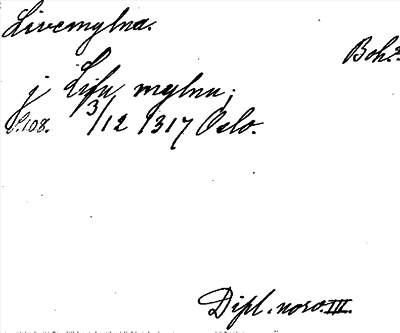 Livemylna.
Boh.
j Lifu mylnu;
S. 108. 3/12 1317 Oslo.
Dipl. norv. III.